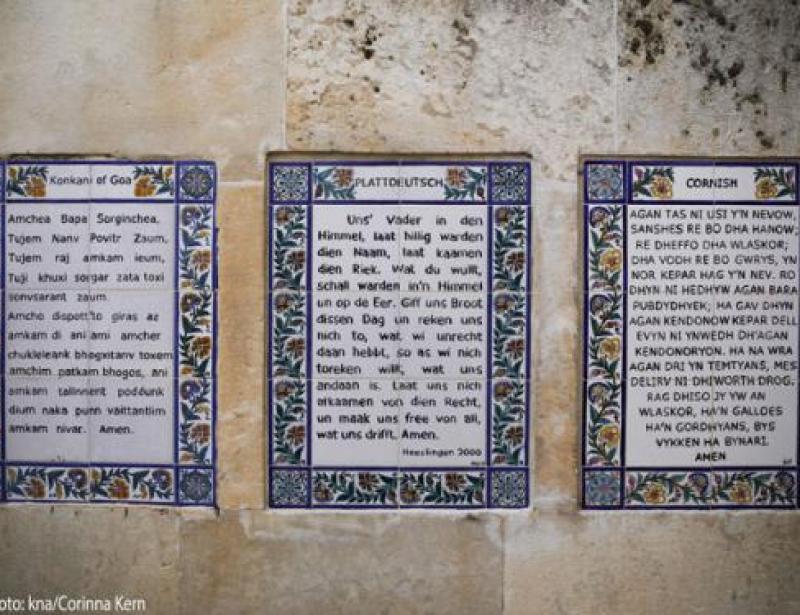 Konkani of Goa
Amchea Bapa Sorginchea,
Tujem Nanv Povitr Zaum,
Tujem raj amkam ieum,
Tuji khuxi sorgar zata toxi
sonvsarant zaum.
Amcho dispotto giras az
amkam di ani ami amcher
chukleleank bhogxitanv toxem
amchim patkam bhogos, ani
amkam talnnent poddunk
dium naka punn vaittantlim
amkam nivar. Amen.
PLATTDEUTSCH
Uns' Vader in den
Himmel, laat hillig warden
dien Naam, laat kaamen
dien Riek. Wat du wullt,
schall warden in'n Himmel
un op de Eer. Giff uns Broot
dissen Dag un reken uns
nich to, wat wi unrecht
daan hebbt, so as wi nich
toreken willt, wat uns
andaan is. Laat uns nich
afkaamen von dien Recht,
un maak uns free von all,
wat uns drifft. Amen.
Heeslingen 2000
CORNISH
AGAN TAS NI USI Y'N NEVOW,
SANSHES RE BO DHA HANOW;
RE DHEFFO DHA WLASKOR;
DHA VODH RE BO GWRYS, Y'N
NOR KEPAR HAG Y'N NEV. RO
DHYN NI HEDHYW AGAN BARA
PUBDYDHYEK; HA GAV DHYN
AGAN KENDONOW KEPAR DELL
EVYN NI YNWEDH DH'AGAN
KENDONORYON. HA NA WRA
AGAN DRI YN TEMTYANS, MES
DELIRV NI DHIWORTH DROG.
RAG DHISO JY YW AN
WLASKOR, HA'N GALLOES
HA'N GORDHYANS, BYS
VYKKEN HA BYNARI.
AMEN
oto: kna/Corinna Kern